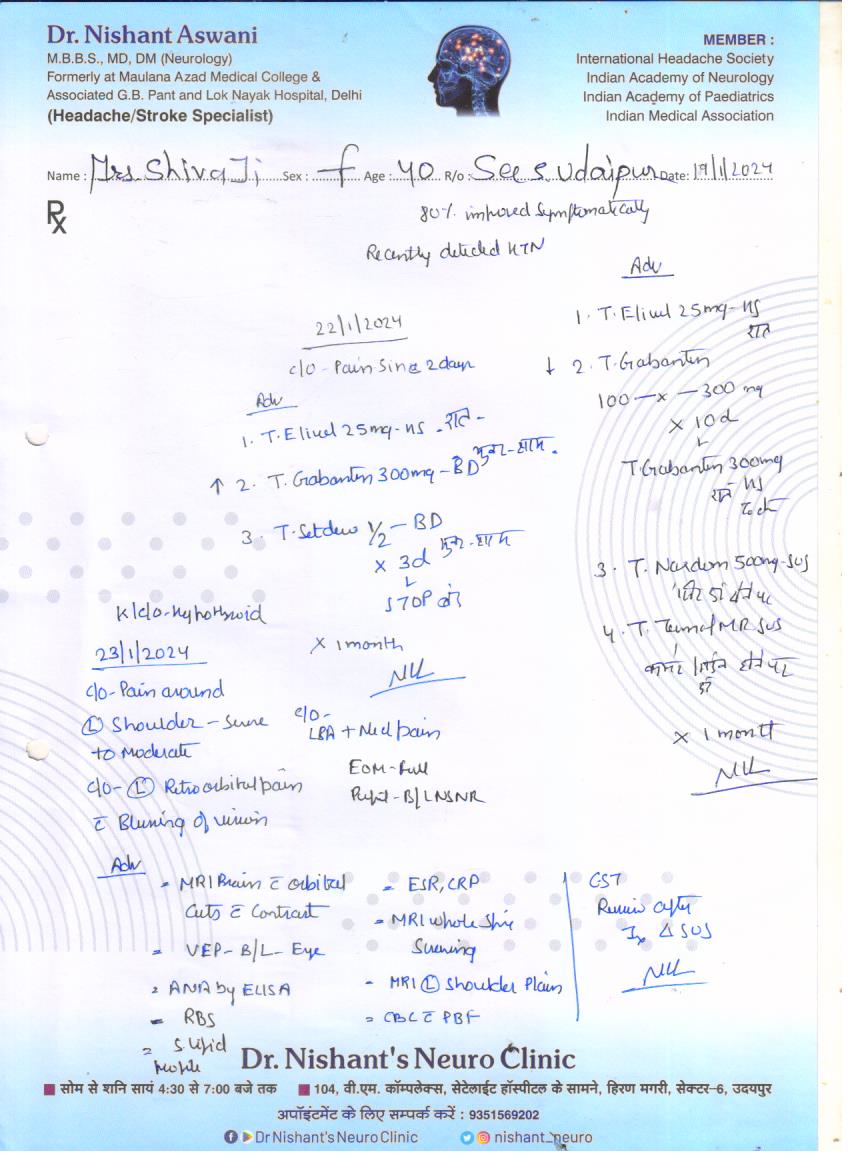 Dr. Nishant Aswani
M.B.B.S., MD, DM (Neurology)
Formerly at Maulana Azad Medical College &
Associated G.B. Pant and Lok Nayak Hospital, Delhi
(Headache/Stroke Specialist)
MEMBER :
International Headache Society
Indian Academy of Neurology
Indian Academy of Paediatrics
Indian Medical Association
Name : Mrs. Shivaji Sex : f Age : 40 R/o : Sec 5, Udaipur Date: 19/1/2024
Rx
80% improved symptomatically
Recently detected HTN
Adv
1. T. Eliwel 25mg - HS
रात
↓ 2. T. Gabantin
100 — x — 300 mg
x 10d
↓
T. Gabantin 300mg
HS
3. T. Nardem 500mg - SOS
4. T. MR SOS
x 1 month
22/1/2024
c/o - Pain since 2 days
Adv
1. T. Eliwel 25mg - HS - रात -
↑ 2. T. Gabantin 300mg - BD सुबह - शाम
3. T. Setdew 1/2 - BD
x 3d सुबह - शाम
↓
STOP करें
x 1 month
K/c/o - Hypothyroid
23/1/2024
c/o - Pain around
(L) Shoulder - Severe
to Moderate
c/o - (L) Retro orbital pain
c̄ Blurring of vision
c/o -
LBA + Neck pain
EOM - full
Pupil - B/L NSNR
Adv
= MRI Brain c̄ orbital
Cuts c̄ Contrast
= VEP - B/L - Eye
= ANA by ELISA
= RBS
= S. Lipid
Profile
= ESR, CRP
= MRI whole Spine
Screening
- MRI (L) Shoulder Plain
= CBC c̄ PBF
CST
Review after
Ix Δ SOS
Dr. Nishant's Neuro Clinic
सोम से शनि सायं 4:30 से 7:00 बजे तक
104, वी.एम. कॉम्पलेक्स, सेटेलाईट हॉस्पीटल के सामने, हिरण मगरी, सेक्टर-6, उदयपुर
अपॉइंटमेंट के लिए सम्पर्क करें : 9351569202
Dr Nishant's Neuro Clinic
nishant_neuro